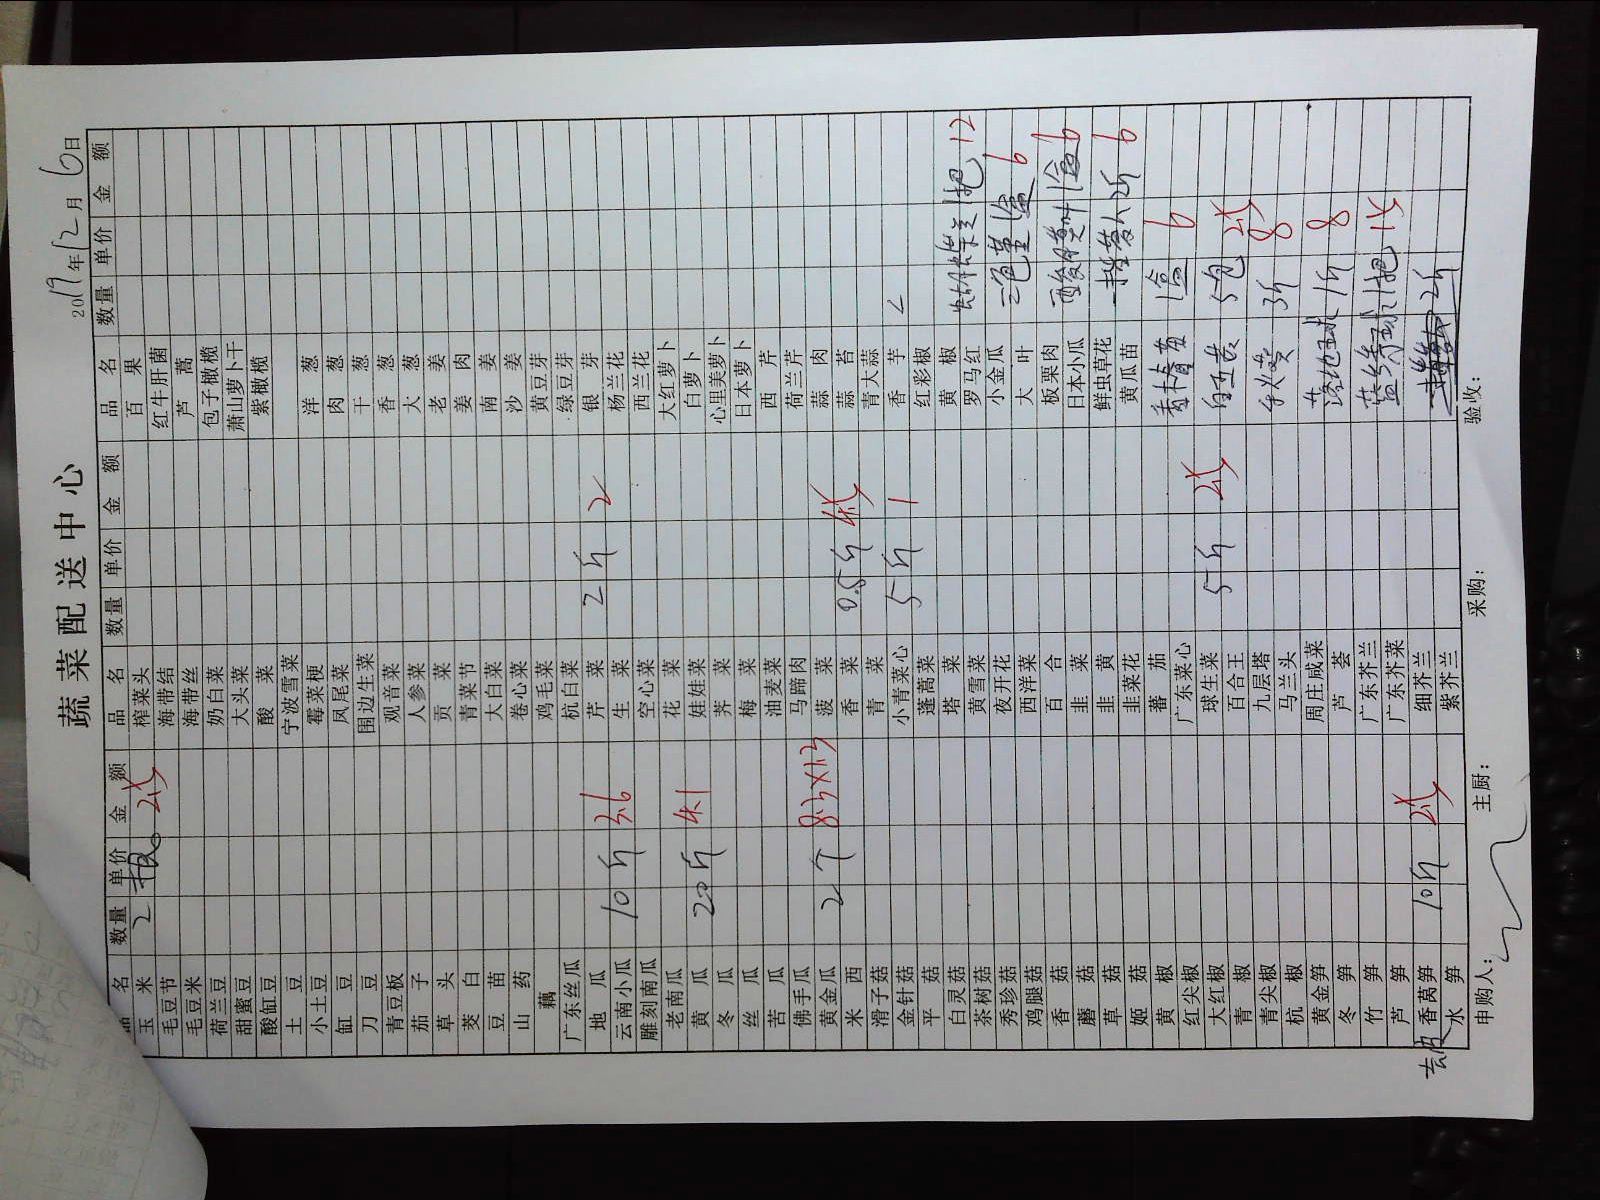 蔬菜配送中心
2019年12月6日
品名 数量 单价 金额 品名 数量 单价 金额 品名 数量 单价 金额
玉米 2 瓶 榨菜头 百果
毛豆节 海带结 红牛肝菌
毛豆米 海带丝 芦蒿
荷兰豆 奶白菜 包子橄榄
甜蜜豆 大头菜 萧山萝卜干
酸缸豆 酸菜 紫橄榄
土豆 宁波雪菜
小土豆 霉菜梗 洋葱
缸豆 凤尾菜 肉葱
刀豆 围边生菜 干葱
青豆板 观音菜 香葱
茄子 人参菜 大葱
草头 贡菜 老姜
茭白 青菜节 姜肉
豆苗 大白菜 南姜
山药 卷心菜 沙姜
藕 鸡毛菜 黄豆芽
广东丝瓜 杭白菜 绿豆芽
地瓜 芹菜 2斤 2 银芽
云南小瓜 10斤 3.6 生菜 杨兰花
雕刻南瓜 空心菜 西兰花
老南瓜 花菜 大红萝卜
黄瓜 20斤 4.1 娃娃菜 白萝卜
冬瓜 荠菜 心里美萝卜
丝瓜 梅菜 日本萝卜
苦瓜 油麦菜 西芹
佛手瓜 马蹄肉 荷兰芹
黄金瓜 2个 8.3×1.3 菠菜 蒜肉
米西 香菜 0.5斤 蒜苔
滑子菇 青菜 青大蒜
金针菇 小青菜心 5斤 1 香芋
平菇 蓬蒿菜 红彩椒
白灵菇 塔菜 黄椒 1把 12
茶树菇 黄雪菜 罗马红
秀珍菇 夜开花 小金瓜 三色堇1盒 6
鸡腿菇 西洋菜 大叶
香菇 百合 板栗肉 酸模叶1盒 6
蘑菇 韭菜 日本小瓜
草菇 韭黄 鲜虫草花 2斤 6
姬菇 韭菜花 黄瓜苗
黄椒 蕃茄 1盒 6
红尖椒 广东菜心
大红椒 球生菜 5斤 5包
青椒 百合王
青尖椒 九层塔 3斤 8
杭椒 马兰头
黄金笋 周庄咸菜 1斤 8
冬笋 芦荟
竹笋 广东芥兰 1把
芦笋 广东芥菜
香莴笋 10斤 细芥兰 2斤
水笋 紫芥兰
去皮
申购人： 主厨： 采购： 验收：